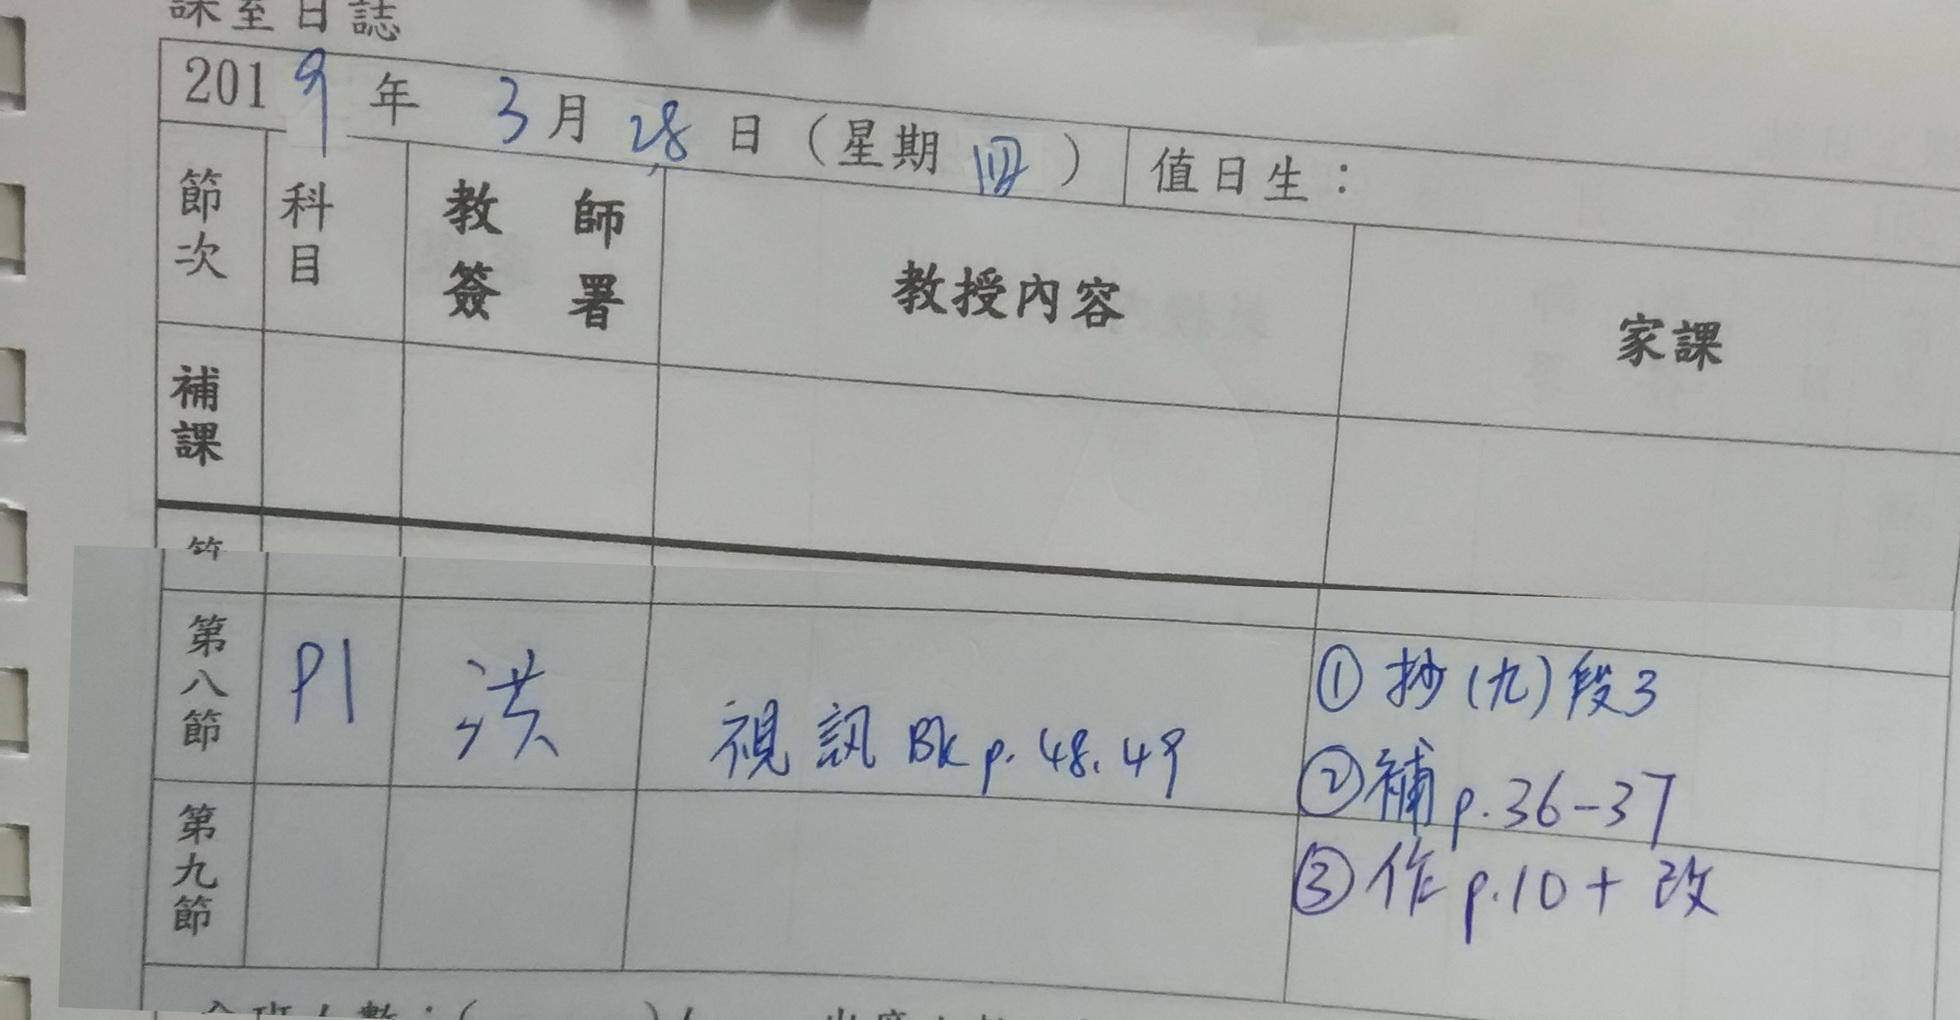 課室日誌
2019年 3月28日（星期四） 值日生：
節次 科目 教師簽署 教授內容 家課
補課
第八節 P1 洪 視訊 Bk p.48.49 ① 抄(九)段3
② 補 p.36-37
第九節 ③ 作 p.10 + 改